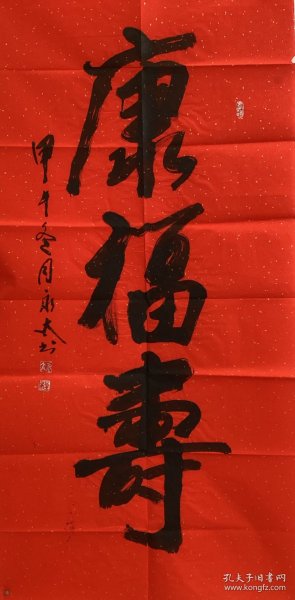 康福寿
甲午冬月永太书
孔夫子旧书网